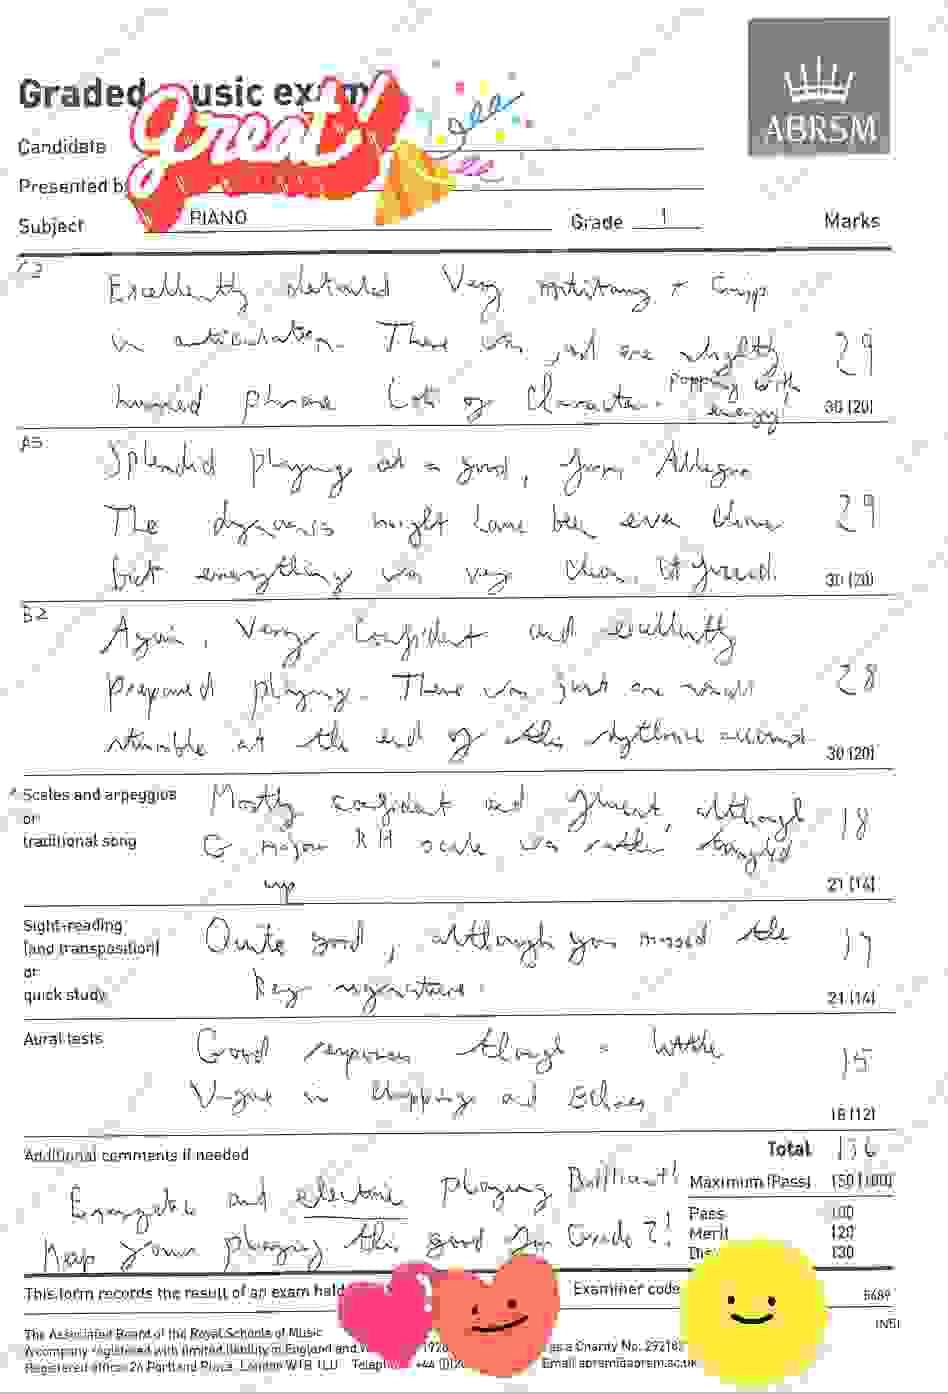 Graded usic exam
Great!
ABRSM
Candidate
Presented b
Subject PIANO Grade 1 Marks
C2
Excellently detailed Very + Crisp
in articulation. There was just one slightly 29
hurried phrase Lots of Character. Popping with energy! 30 (20)
A3
Splendid playing at a good, firm Allegro
The dynamics might have been even 29
but everything was very clear, it 30 (20)
B2
Again, Very Confident and excellently
prepared playing. There was just one small 28
stumble at the end of this rhythmic 30 (20)
Scales and arpeggios
or
traditional song
Mostly confident and fluent, although 18
G major RH scale was rather tangled
up 21 (14)
Sight-reading
(and transposition)
or
quick study
Quite good, although you missed the 17
Key signature. 21 (14)
Aural tests
Good responses though a little 15
Vague in Clapping and Echoes 18 (12)
Additional comments if needed
Total 136
Maximum (Pass) 150 (100)
Pass 100
Merit 120
130
Energetic and electric playing Brilliant!
Keep your playing this good for Grade 2!
This form records the result of an exam held
Examiner code
5689
The Associated Board of the Royal Schools of Music
A company registered with limited liability in England and as a Charity No. 292182
Registered office: 24 Portland Place, London W1B 1LU +44 Email abrsm@abrsm.ac.uk